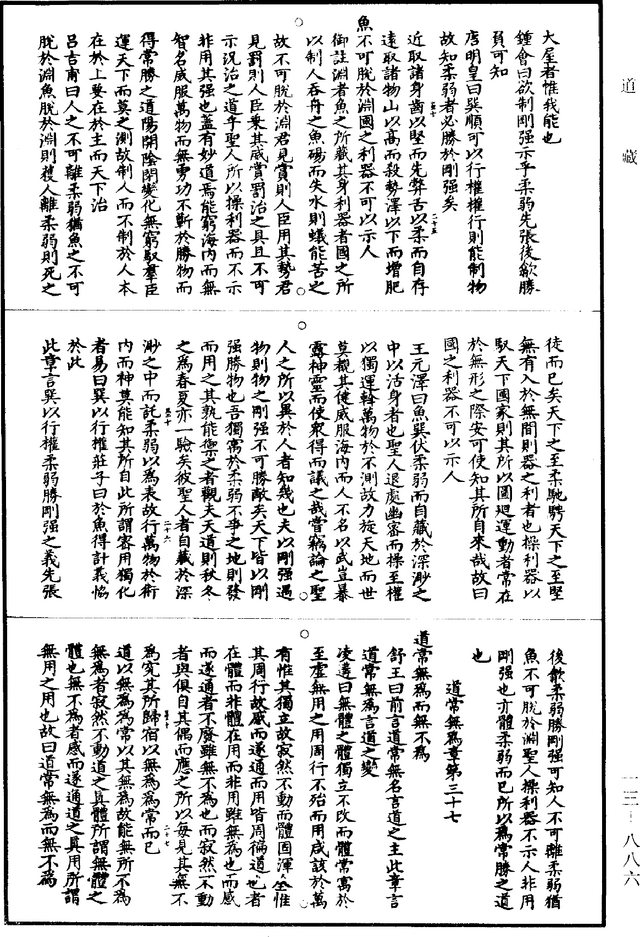 道藏
大屋者惟我能也
鍾會曰欲制剛強示乎柔弱先張後歙勝
員可知
唐明皇曰巽順可以行權權行則能制物
故知柔弱者必勝於剛強矣
近取諸身齒以堅而先弊舌以柔而自存
遠取諸物山以高而殺勢澤以下而增肥
魚不可脫於淵國之利器不可以示人
御註淵者魚之所藏其身利器者國之所
以制人吞舟之魚碭而失水則蟻能苦之
故不可脫於淵君見賞則人臣用其勢君
見罰則人臣乗其威賞罰治之具且不可
示況治之道乎聖人所以操利器而不示
非用其強也蓋有妙道焉能窮海內而無
智名威服萬物而無勇功不斬於勝物而
得常勝之道陽開陰閉變化無窮馭羣臣
運天下而莫之測故制人而不制於人本
在於上要在於主而天下治
呂吉甫曰人之不可離柔弱猶魚之不可
脫於淵魚脫於淵則獲人離柔弱則死之
徒而已矣天下之至柔馳騁天下之至堅
無有入於無間則器之利者也操利器以
馭天下國家則其所以圖廻運動者常在
於無形之際安可使知其所自來哉故曰
國之利器不可以示人
王元澤曰魚巽伏柔弱而自藏於深渺之
中以活身者也聖人退處幽密而操至權
以獨運斡萬物於不測故力旋天地而世
莫覩其健威服海內而人不名以武豈暴
露神靈而使衆得而議之哉嘗竊論之聖
人之所以異於人者知幾也夫以剛強遇
物則物之剛強不可勝敵矣天下皆以剛
強勝物也吾獨寓於柔弱不爭之地則發
而用之其孰能禦之者觀夫天道則秋冬
之為春夏亦一驗矣彼聖人者自藏於深
渺之中而託柔弱以為表故行萬物於術
內而神莫能知其所自此所謂密用獨化
者易曰巽以行權莊子曰於魚得計義恊
於此
此章言巽以行權柔弱勝剛強之義先張
後歙柔弱勝剛強可知人不可離柔弱猶
魚不可脫於淵聖人操利器不示人非用
剛強也亦體柔弱而已所以為常勝之道
也
道常無為章第三十七
道常無為而無不為
舒王曰前言道常無名言道之主此章言
道常無為言道之變
凌遘曰無體之體獨立不改而體常寓於
至虛無用之用周行不殆而用咸該於萬
有惟其獨立故寂然不動而體固渾全惟
其周行故感而遂通而用皆周徧道也者
在體而非體在用而非用雖無為也而感
而遂通者不廢雖無不為也而寂然不動
者與俱自其偶而應之所以每見其無不
為究其所歸宿以無為為常而已
道以無為為常以其無為故能無所不為
無為者寂然不動道之真體所謂無體之
體也無不為者感而遂通道之真用所謂
無用之用也故曰道常無為而無不為
一三-八八六